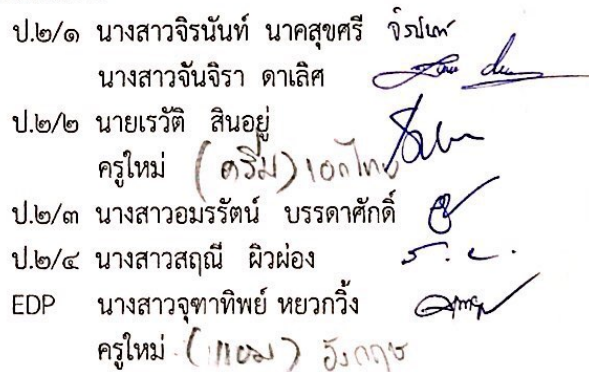 ป.๒/๑ นางสาวจิรนันท์ นาคสุขศรี จิรนันท์
นางสาวจันจิรา ดาเลิศ
ป.๒/๒ นายเรวัติ สินอยู่
ครูใหม่ (ครีม) เอกไทย
ป.๒/๓ นางสาวอมรรัตน์ บรรดาศักดิ์
ป.๒/๔ นางสาวสฤณี ผิวผ่อง
EDP นางสาวจุฑาทิพย์ หยวกวิ้ง
ครูใหม่ (แอม) อังกฤษ